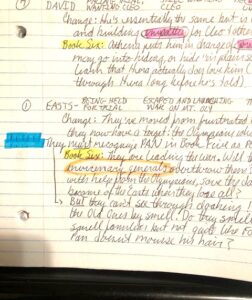 DAVID WANTING CLEO CLEO
Change: He's essentially the same but
and building empathy for Cleo
Book Six: Athena puts him in charge of
may go into hiding, or hide in plain
learn that Hera actually does love him
through Hera long before he's told)
① EASTS - BEING HELD ESCAPED AND LAUNCHING
FOR TRIAL WAR ON MT. OLY
Change: They've moved from frustrated
they now have a target: the Olympians
They must recognize PAN in Book Five as
Book Six: They are leading the war. Will
mercenary generals overthrow them
with help from the Olympians, save the day
become of the Easts when they lose all?
But they can't see through cloaking!
the Old Ones by smell. Do they smell
smell familiar but not quite like
Pan doesn't mousse his hair?